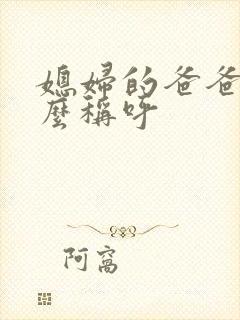 媳婦的爸爸
麼稱呼
阿窩